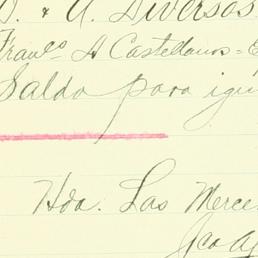 D. & A. Diversos
Franco A Castellanos =
Saldo para igu
Hda. Las Merce